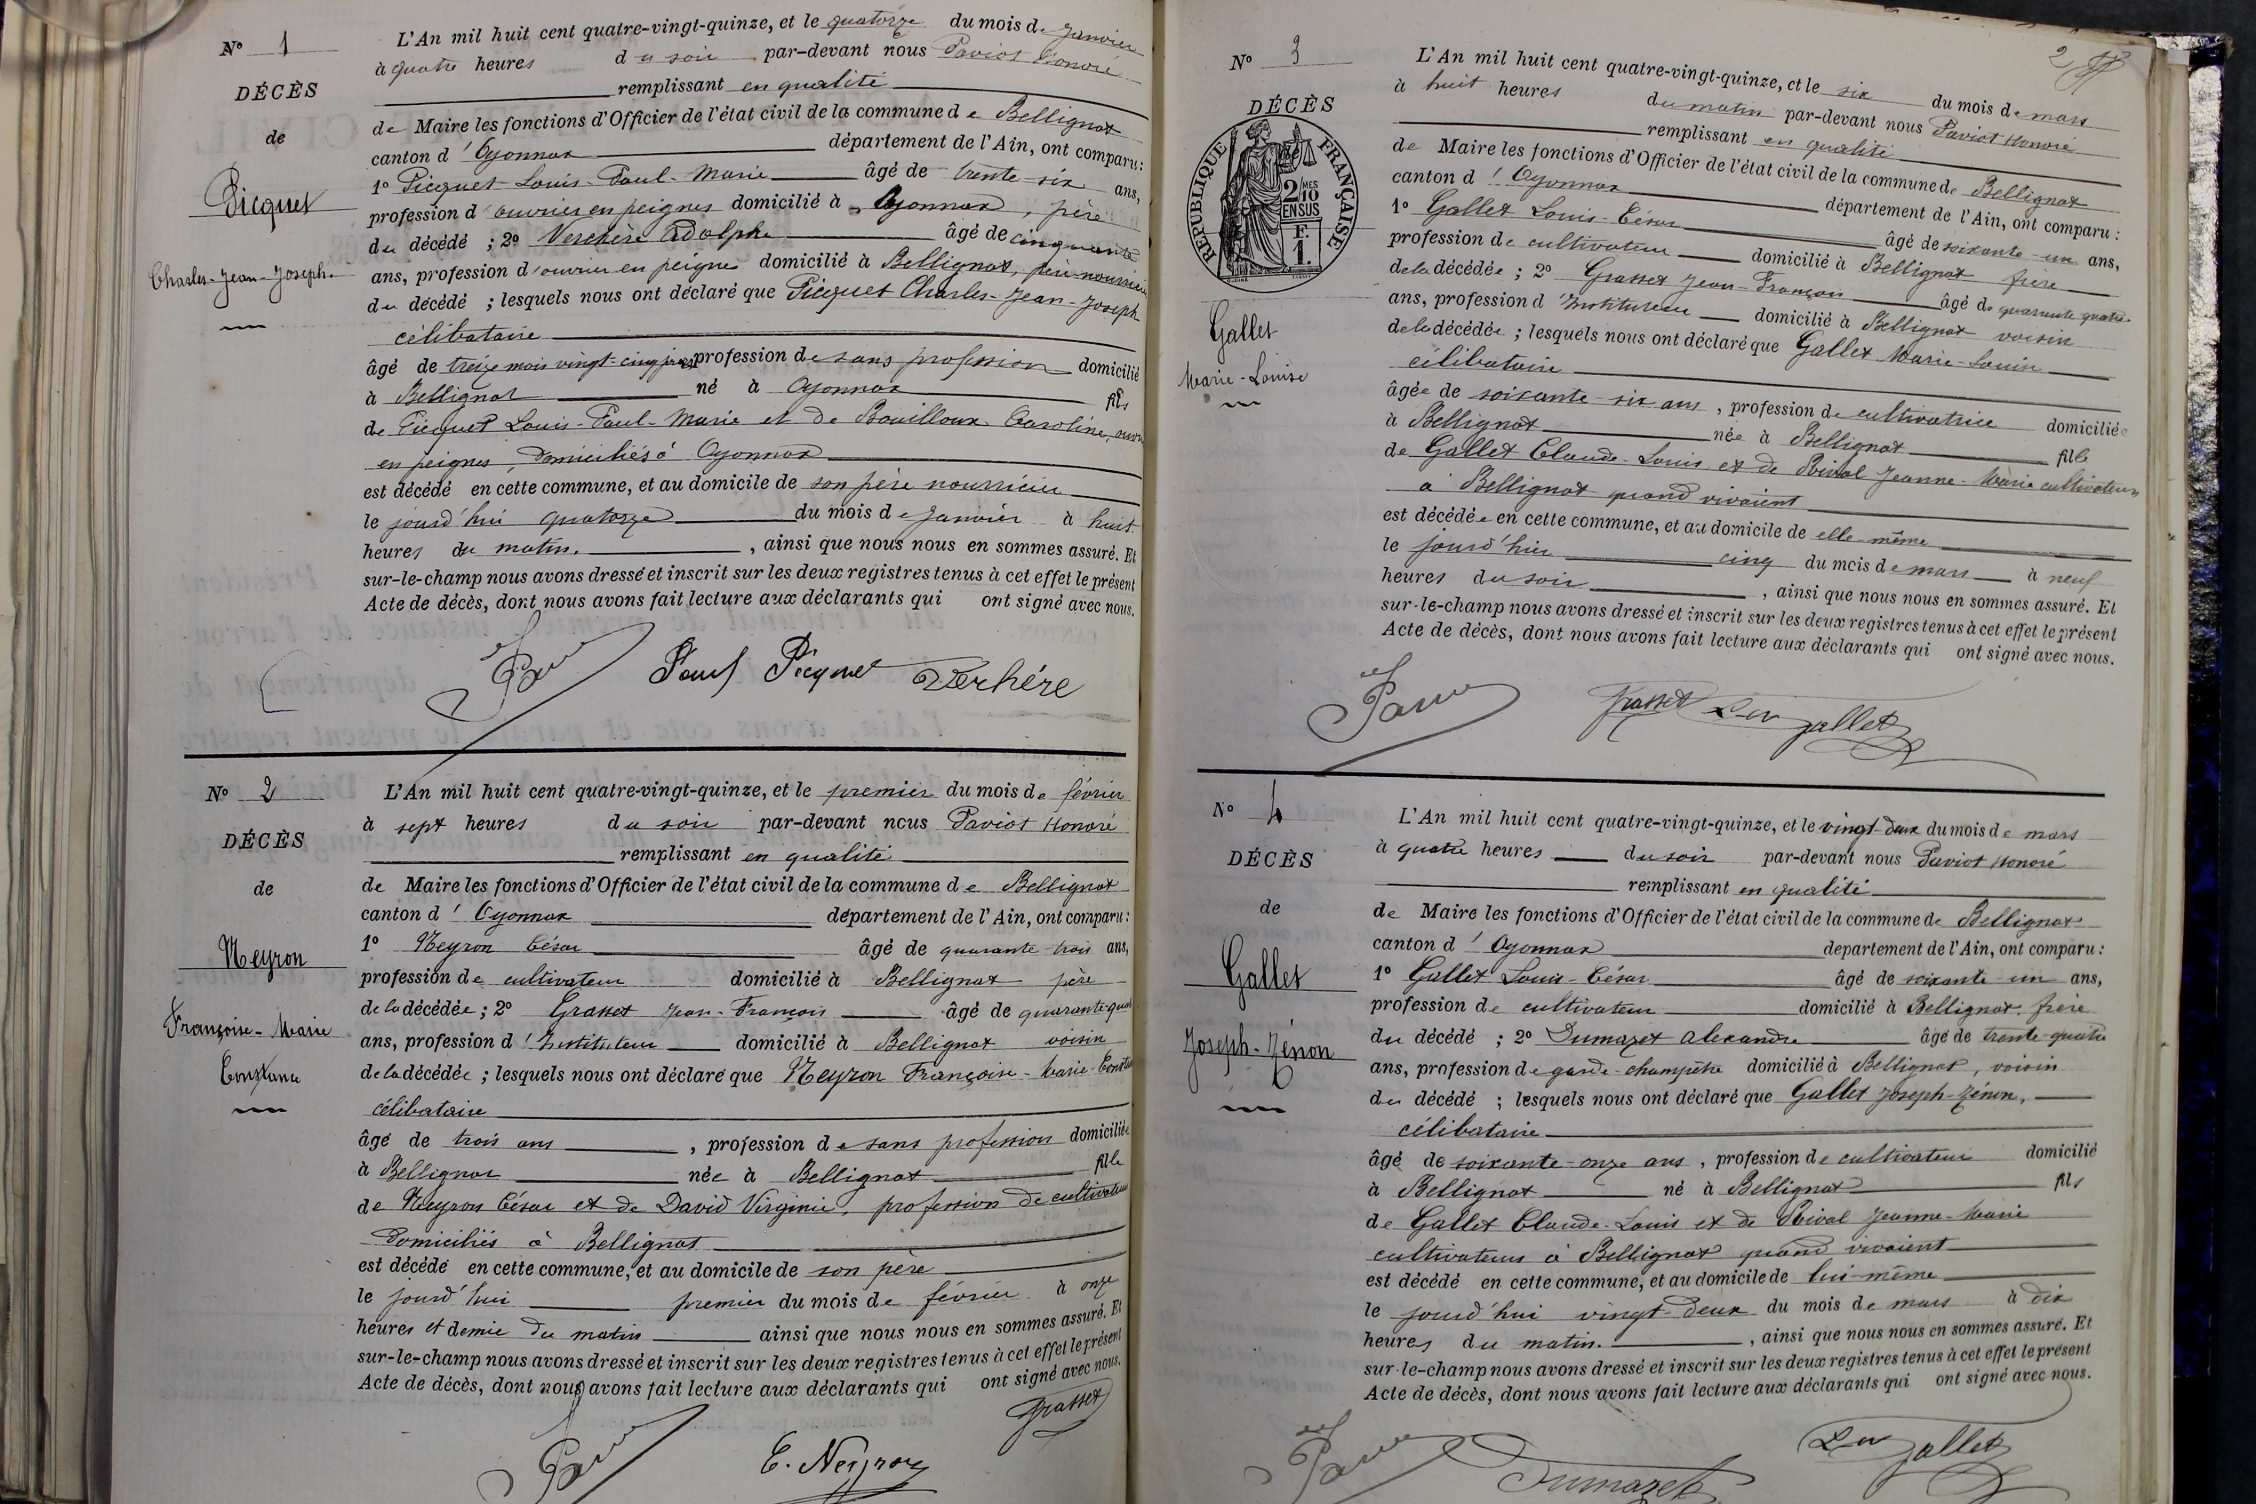 N° 1
DÉCÈS
de
Picquet
Charles-Jean-Joseph
L'An mil huit cent quatre-vingt-quinze, et le quatorze du mois de janvier
à quatre heures du soir par-devant nous Paviot Honoré
remplissant en qualité
de Maire les fonctions d'Officier de l'état civil de la commune de Bellignat
canton d'Oyonnax département de l'Ain, ont comparu :
1° Picquet Louis-Paul-Marie âgé de trente-six ans,
profession d'ouvrier en peignes domicilié à Oyonnax, père
du décédé ; 2° Verchère Adolphe âgé de cinquante
ans, profession d'ouvrier en peignes domicilié à Bellignat, père nourricier
du décédé ; lesquels nous ont déclaré que Picquet Charles-Jean-Joseph
célibataire
âgé de treize mois vingt-cinq jours, profession de sans profession domicilié
à Bellignat né à Oyonnax fils
de Picquet Louis-Paul-Marie et de Bouilloux Caroline,
en peignes, domiciliés à Oyonnax
est décédé en cette commune, et au domicile de son père nourricier
le jourd'hui quatorze du mois de janvier à huit
heures du matin. , ainsi que nous nous en sommes assuré. Et
sur-le-champ nous avons dressé et inscrit sur les deux registres tenus à cet effet le présent
Acte de décès, dont nous avons fait lecture aux déclarants qui ont signé avec nous.
Paul Picquet Verchère
N° 2
DÉCÈS
de
Neyron
Françoise-Marie
Constance
L'An mil huit cent quatre-vingt-quinze, et le premier du mois de février
à sept heures du soir par-devant nous Paviot Honoré
remplissant en qualité
de Maire les fonctions d'Officier de l'état civil de la commune de Bellignat
canton d'Oyonnax département de l'Ain, ont comparu :
1° Neyron César âgé de quarante-trois ans,
profession de cultivateur domicilié à Bellignat père
de la décédée ; 2° Grasset Jean-François âgé de quarante-quatre
ans, profession d'Instituteur domicilié à Bellignat voisin
de la décédée ; lesquels nous ont déclaré que Neyron Françoise-Marie-Constance
célibataire
âgé de trois ans , profession de sans profession domiciliée
à Bellignat née à Bellignat fille
de Neyron César et de David Virginie, profession de cultivateurs
domiciliés à Bellignat
est décédé en cette commune, et au domicile de son père
le jourd'hui premier du mois de février à onze
heures et demie du matin ainsi que nous nous en sommes assuré. Et
sur-le-champ nous avons dressé et inscrit sur les deux registres tenus à cet effet le présent
Acte de décès, dont nous avons fait lecture aux déclarants qui ont signé avec nous.
Grasset
C. Neyron
2
N° 3
DÉCÈS
RÉPUBLIQUE FRANÇAISE
2 MES
10
EN SUS
F.
1.
Gallet
Marie-Louise
L'An mil huit cent quatre-vingt-quinze, et le six du mois de mars
à huit heures du matin par-devant nous Paviot Honoré
remplissant en qualité
de Maire les fonctions d'Officier de l'état civil de la commune de Bellignat
canton d'Oyonnax département de l'Ain, ont comparu :
1° Gallet Louis-César âgé de soixante-un ans,
profession de cultivateur domicilié à Bellignat frère
de la décédée ; 2° Grasset Jean-François âgé de quarante quatre
ans, profession d'Instituteur domicilié à Bellignat voisin
de la décédée ; lesquels nous ont déclaré que Gallet Marie-Louise
célibataire
âgée de soixante-six ans , profession de cultivatrice domiciliée
à Bellignat née à Bellignat fille
de Gallet Claude-Louis et de Rival Jeanne-Marie cultivateurs
à Bellignat quand vivaient
est décédée en cette commune, et au domicile de elle-même
le jourd'hier cinq du mois de mars à neuf
heures du soir , ainsi que nous nous en sommes assuré. Et
sur-le-champ nous avons dressé et inscrit sur les deux registres tenus à cet effet le présent
Acte de décès, dont nous avons fait lecture aux déclarants qui ont signé avec nous.
Grasset Gallet
N° 4
DÉCÈS
de
Gallet
Joseph-Zénon
L'An mil huit cent quatre-vingt-quinze, et le vingt-deux du mois de mars
à quatre heures du soir par-devant nous Paviot Honoré
remplissant en qualité
de Maire les fonctions d'Officier de l'état civil de la commune de Bellignat
canton d'Oyonnax département de l'Ain, ont comparu :
1° Gallet Louis-César âgé de soixante-un ans,
profession de cultivateur domicilié à Bellignat, frère
du décédé ; 2° Dumazet Alexandre âgé de trente-quatre
ans, profession de garde-champêtre domicilié à Bellignat, voisin
du décédé ; lesquels nous ont déclaré que Gallet Joseph-Zénon,
célibataire
âgé de soixante-onze ans , profession de cultivateur domicilié
à Bellignat né à Bellignat fils
de Gallet Claude-Louis et de Rival Jeanne-Marie
cultivateurs à Bellignat quand vivaient
est décédé en cette commune, et au domicile de lui-même
le jourd'hui vingt-deux du mois de mars à dix
heures du matin. , ainsi que nous nous en sommes assuré. Et
sur-le-champ nous avons dressé et inscrit sur les deux registres tenus à cet effet le présent
Acte de décès, dont nous avons fait lecture aux déclarants qui ont signé avec nous.
Dumazet Gallet